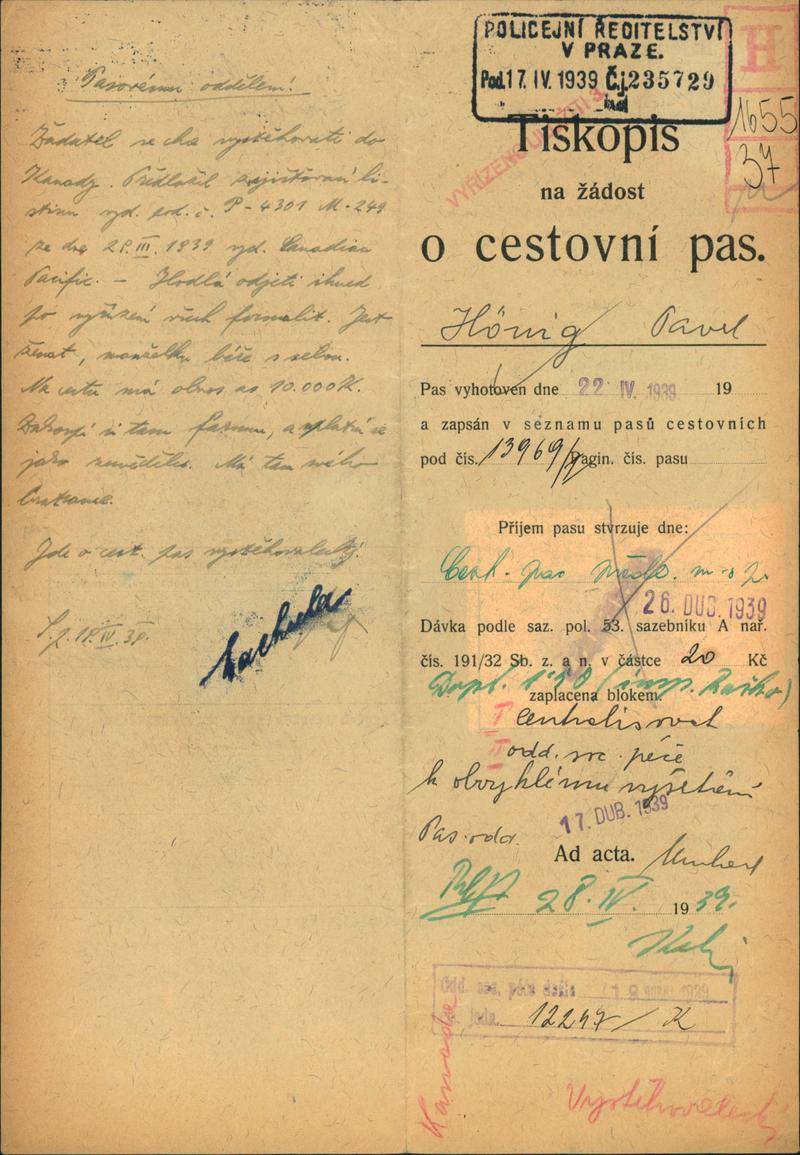 Pasovému oddělení!
Žadatel se chce vystěhovati do
Kanady. Předložil zajišťovací li-
stinu vyd. pod. č. P-4301 M-249
ze dne 28.III.1939 vyd. Canadian
Pacific. — Hodlá odjeti ihned
po vyřízení všech formalit. Jest
ženat, manželku béře s sebou.
Na cestu má obnos as 10.000 K.
si tam farmu, a
jako zemědělec. Má tam svého
bratrance.
Jde o cest. pas vystěhovalecký.
18.IV.39.
POLICEJNÍ ŘEDITELSTVÍ
V PRAZE.
Pod. 17. IV. 1939 Č.j. 235729
H
1655
37
VYŘÍZENO
Tiskopis
na žádost
o cestovní pas.
Hönig Pavel
Pas vyhotoven dne 22 IV. 1939 19
a zapsán v seznamu pasů cestovních
pod čís. 13969/ pagin. čís. pasu
Příjem pasu stvrzuje dne:
Cest. pas
26. DUB. 1939
Dávka podle saz. pol. 53. sazebníku A nař.
čís. 191/32 Sb. z. a n. v částce 20 Kč
Dopl. 1.50
zaplacena blokem.
I centralisovat
II odd. soc. péče
k obvyklému vyšetření
17. DUB. 1939
Pas. odd.
Ad acta.
28. IV. 1939.
Odd. soc. péče došlo 18 1939
12247/K
Kanada
Vystěhovalecký